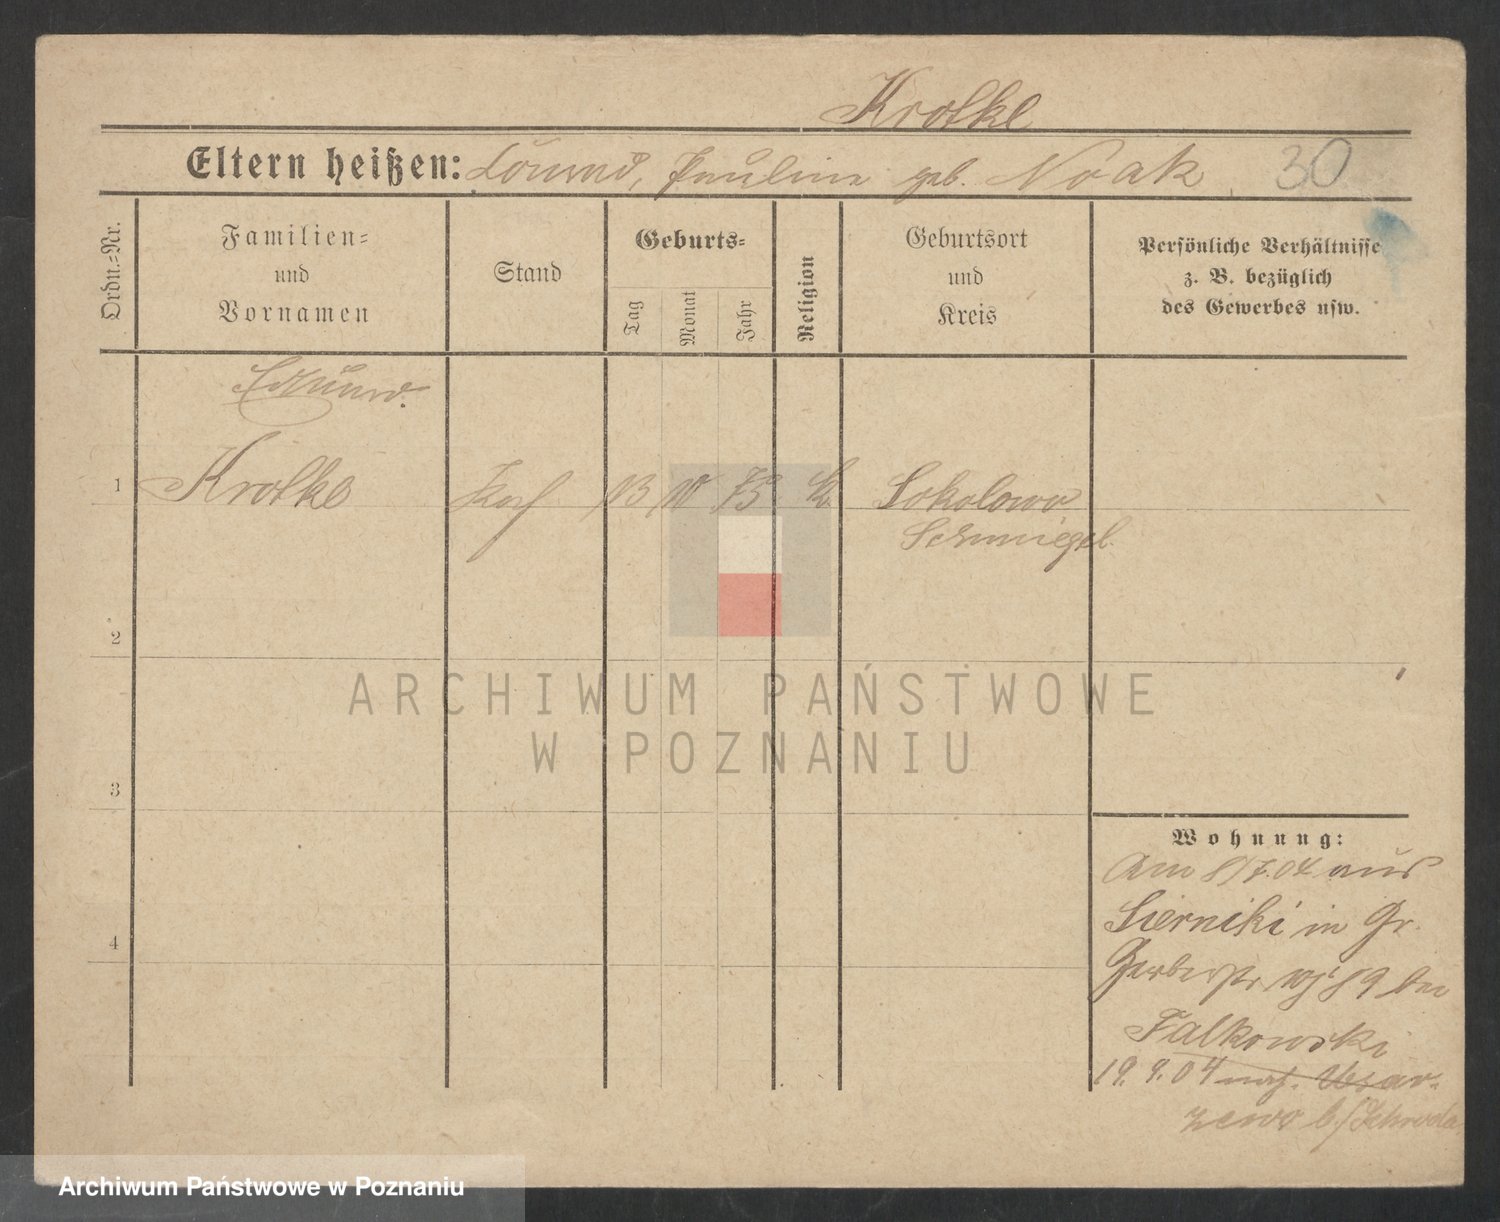 Krotke
Eltern heißen: Eduard, Pauline geb. Noak, 30
Ordn.=Nr.
Familien=
und
Vornamen
Stand
Geburts=
Tag
Monat
Jahr
Religion
Geburtsort
und
Kreis
Persönliche Verhältnisse
z. B. bezüglich
des Gewerbes usw.
1 Krotke 13 10 75 k Sokolowo
Schmiegel
2
3
4
Wohnung:
Am 8/7.04 aus
Sierniki in Gr.
Gerberstr 89 bei
Falkowski
19.9.04 nach
b/Schroda
ARCHIWUM PAŃSTWOWE
W POZNANIU
Archiwum Państwowe w Poznaniu